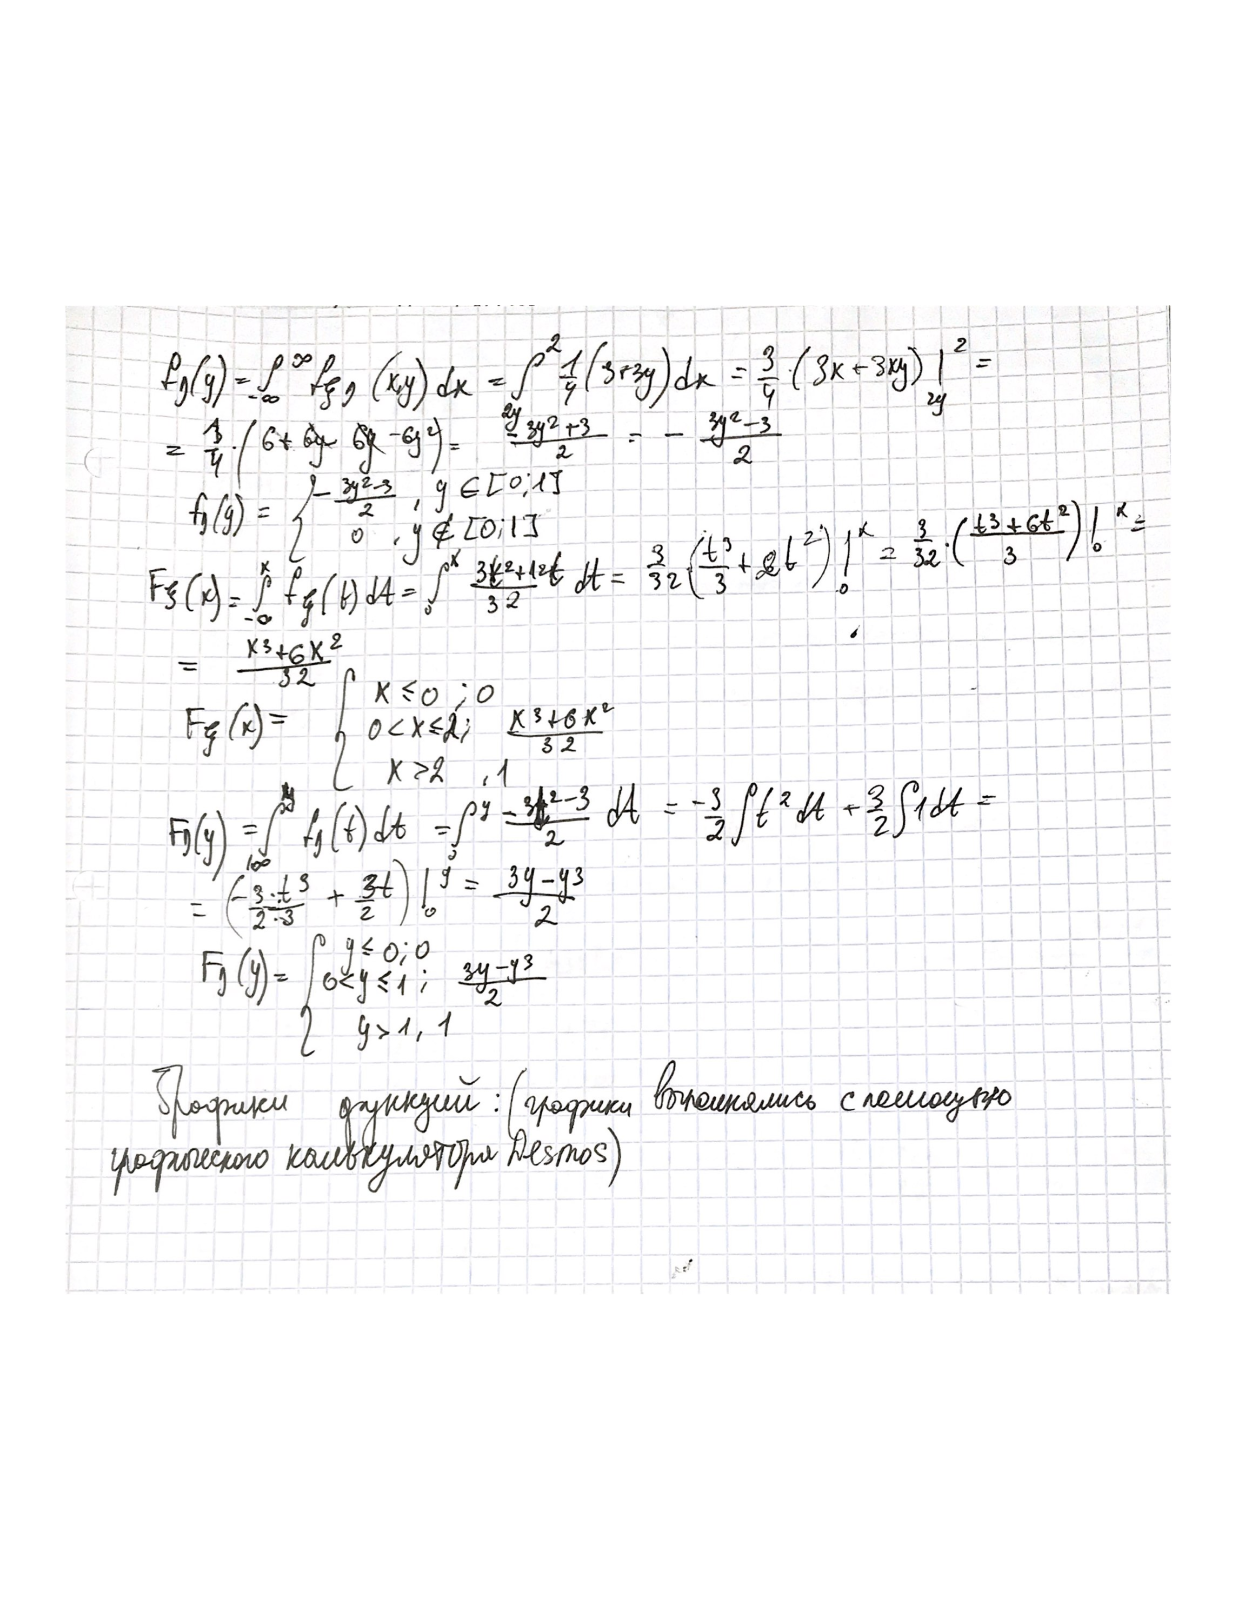 f_η(y) = ∫_{-∞}^{∞} f_{ξη}(x,y) dx = ∫_{2y}^{2} 1/4 (3+3y) dx = 3/4 · (3x + 3xy) |_{2y}^{2} =
= 1/4 · (6 + 6y - 6y - 6y²) = (-3y² + 3)/2 = - (3y² - 3)/2
f_η(y) = { - (3y² - 3)/2 , y ∈ [0;1]
0 , y ∉ [0;1]
F_ξ(x) = ∫_{-∞}^{x} f_ξ(t) dt = ∫_{0}^{x} (3t² + 12t)/32 dt = 3/32 (t³/3 + 2t²) |_{0}^{x} = 3/32 · ((t³ + 6t²)/3) |_{0}^{x} =
= (x³ + 6x²)/32
F_ξ(x) = { x ≤ 0 ; 0
0 < x ≤ 2 ; (x³ + 6x²)/32
x > 2 , 1
F_η(y) = ∫_{-∞}^{y} f_η(t) dt = ∫_{0}^{y} - (3t² - 3)/2 dt = -3/2 ∫ t² dt + 3/2 ∫ 1 dt =
= (- (3·t³)/(2·3) + 3t/2) |_{0}^{y} = (3y - y³)/2
F_η(y) = { y ≤ 0 ; 0
0 < y ≤ 1 ; (3y - y³)/2
y > 1 , 1
Графики функций: (графики выполнялись с помощью
графического калькулятора Desmos)